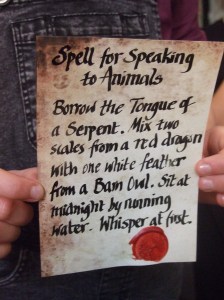 Spell for Speaking
to Animals
Borrow the Tongue of
a Serpent. Mix two
scales from a red dragon
with one white feather
from a Barn Owl. Sit at
midnight by running
water. Whisper at first.